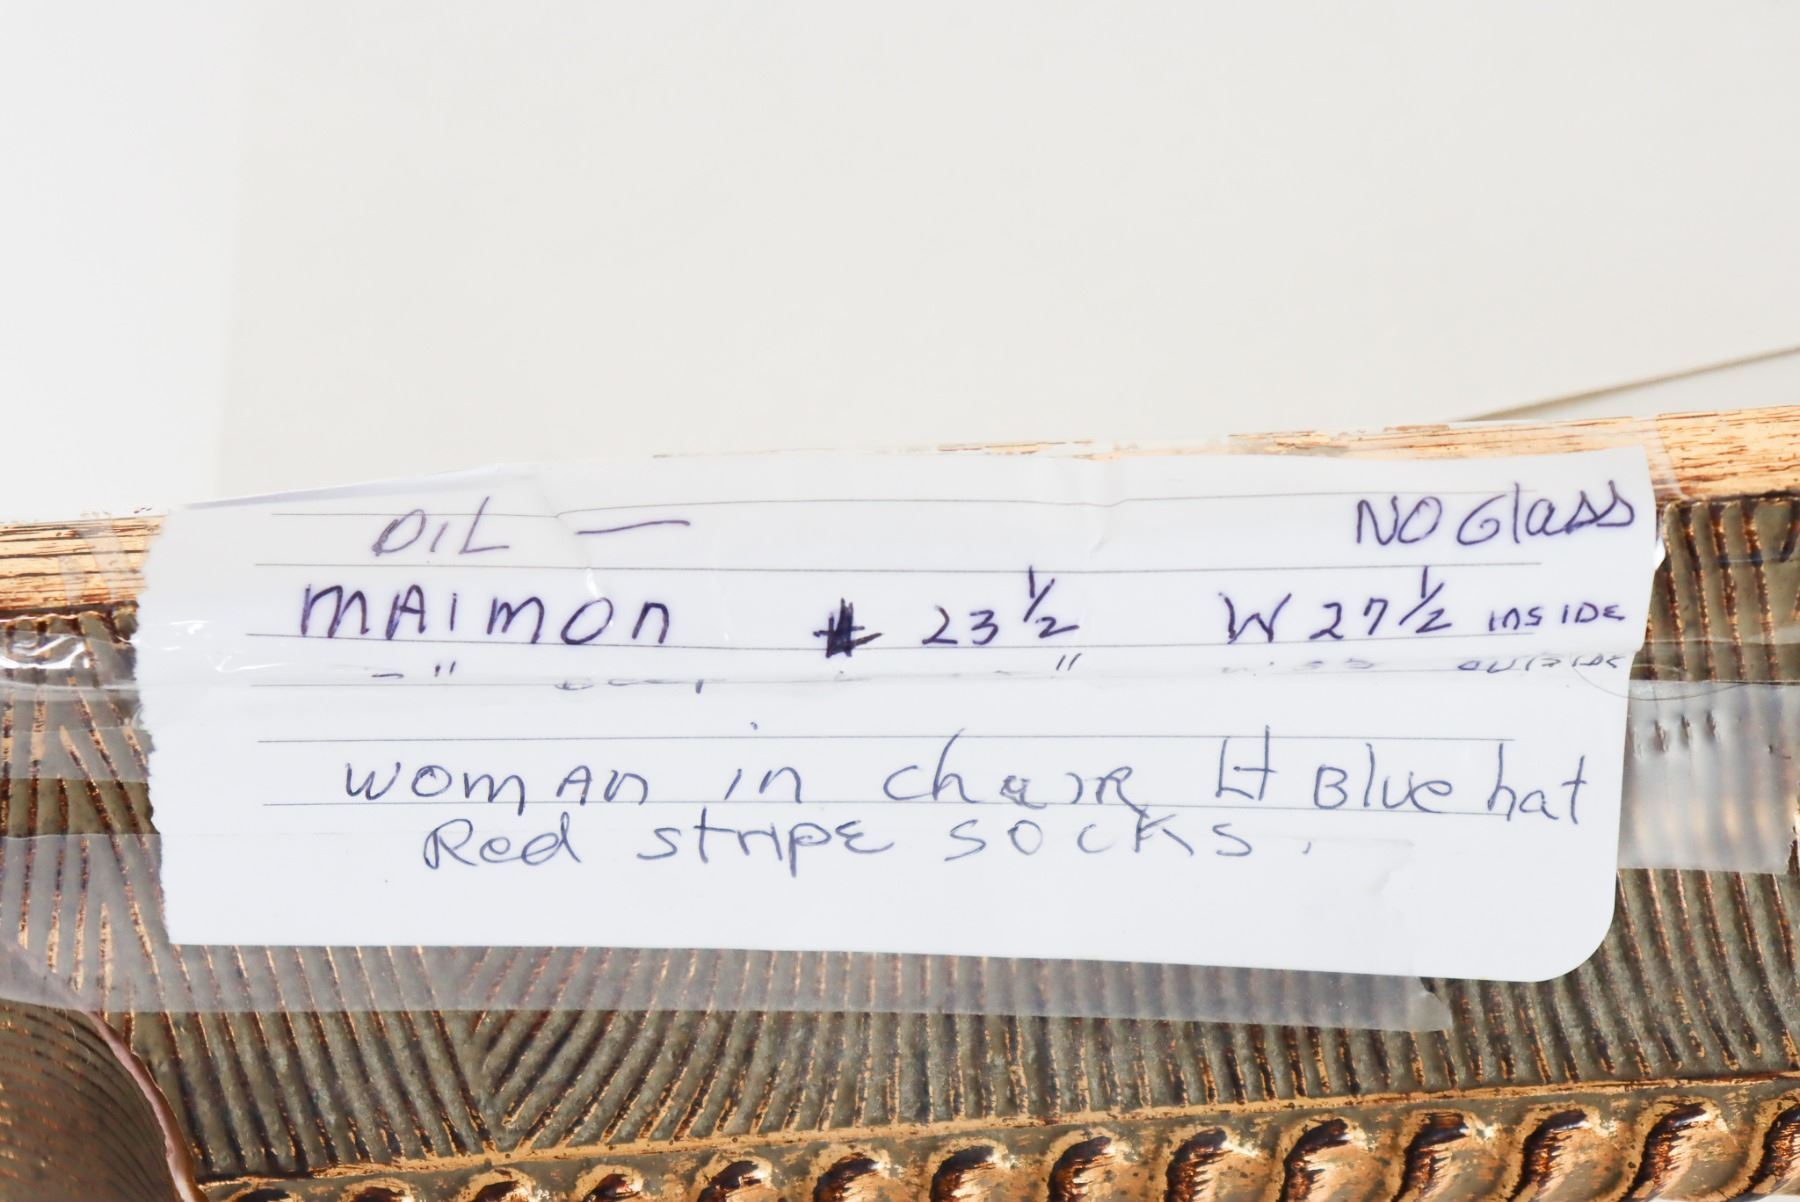 OIL — NO Glass
MAIMON H 23 1/2 W 27 1/2 INSIDE
" " OUTSIDE
WOMAN in chair Lt Blue hat
Red stripe socks.